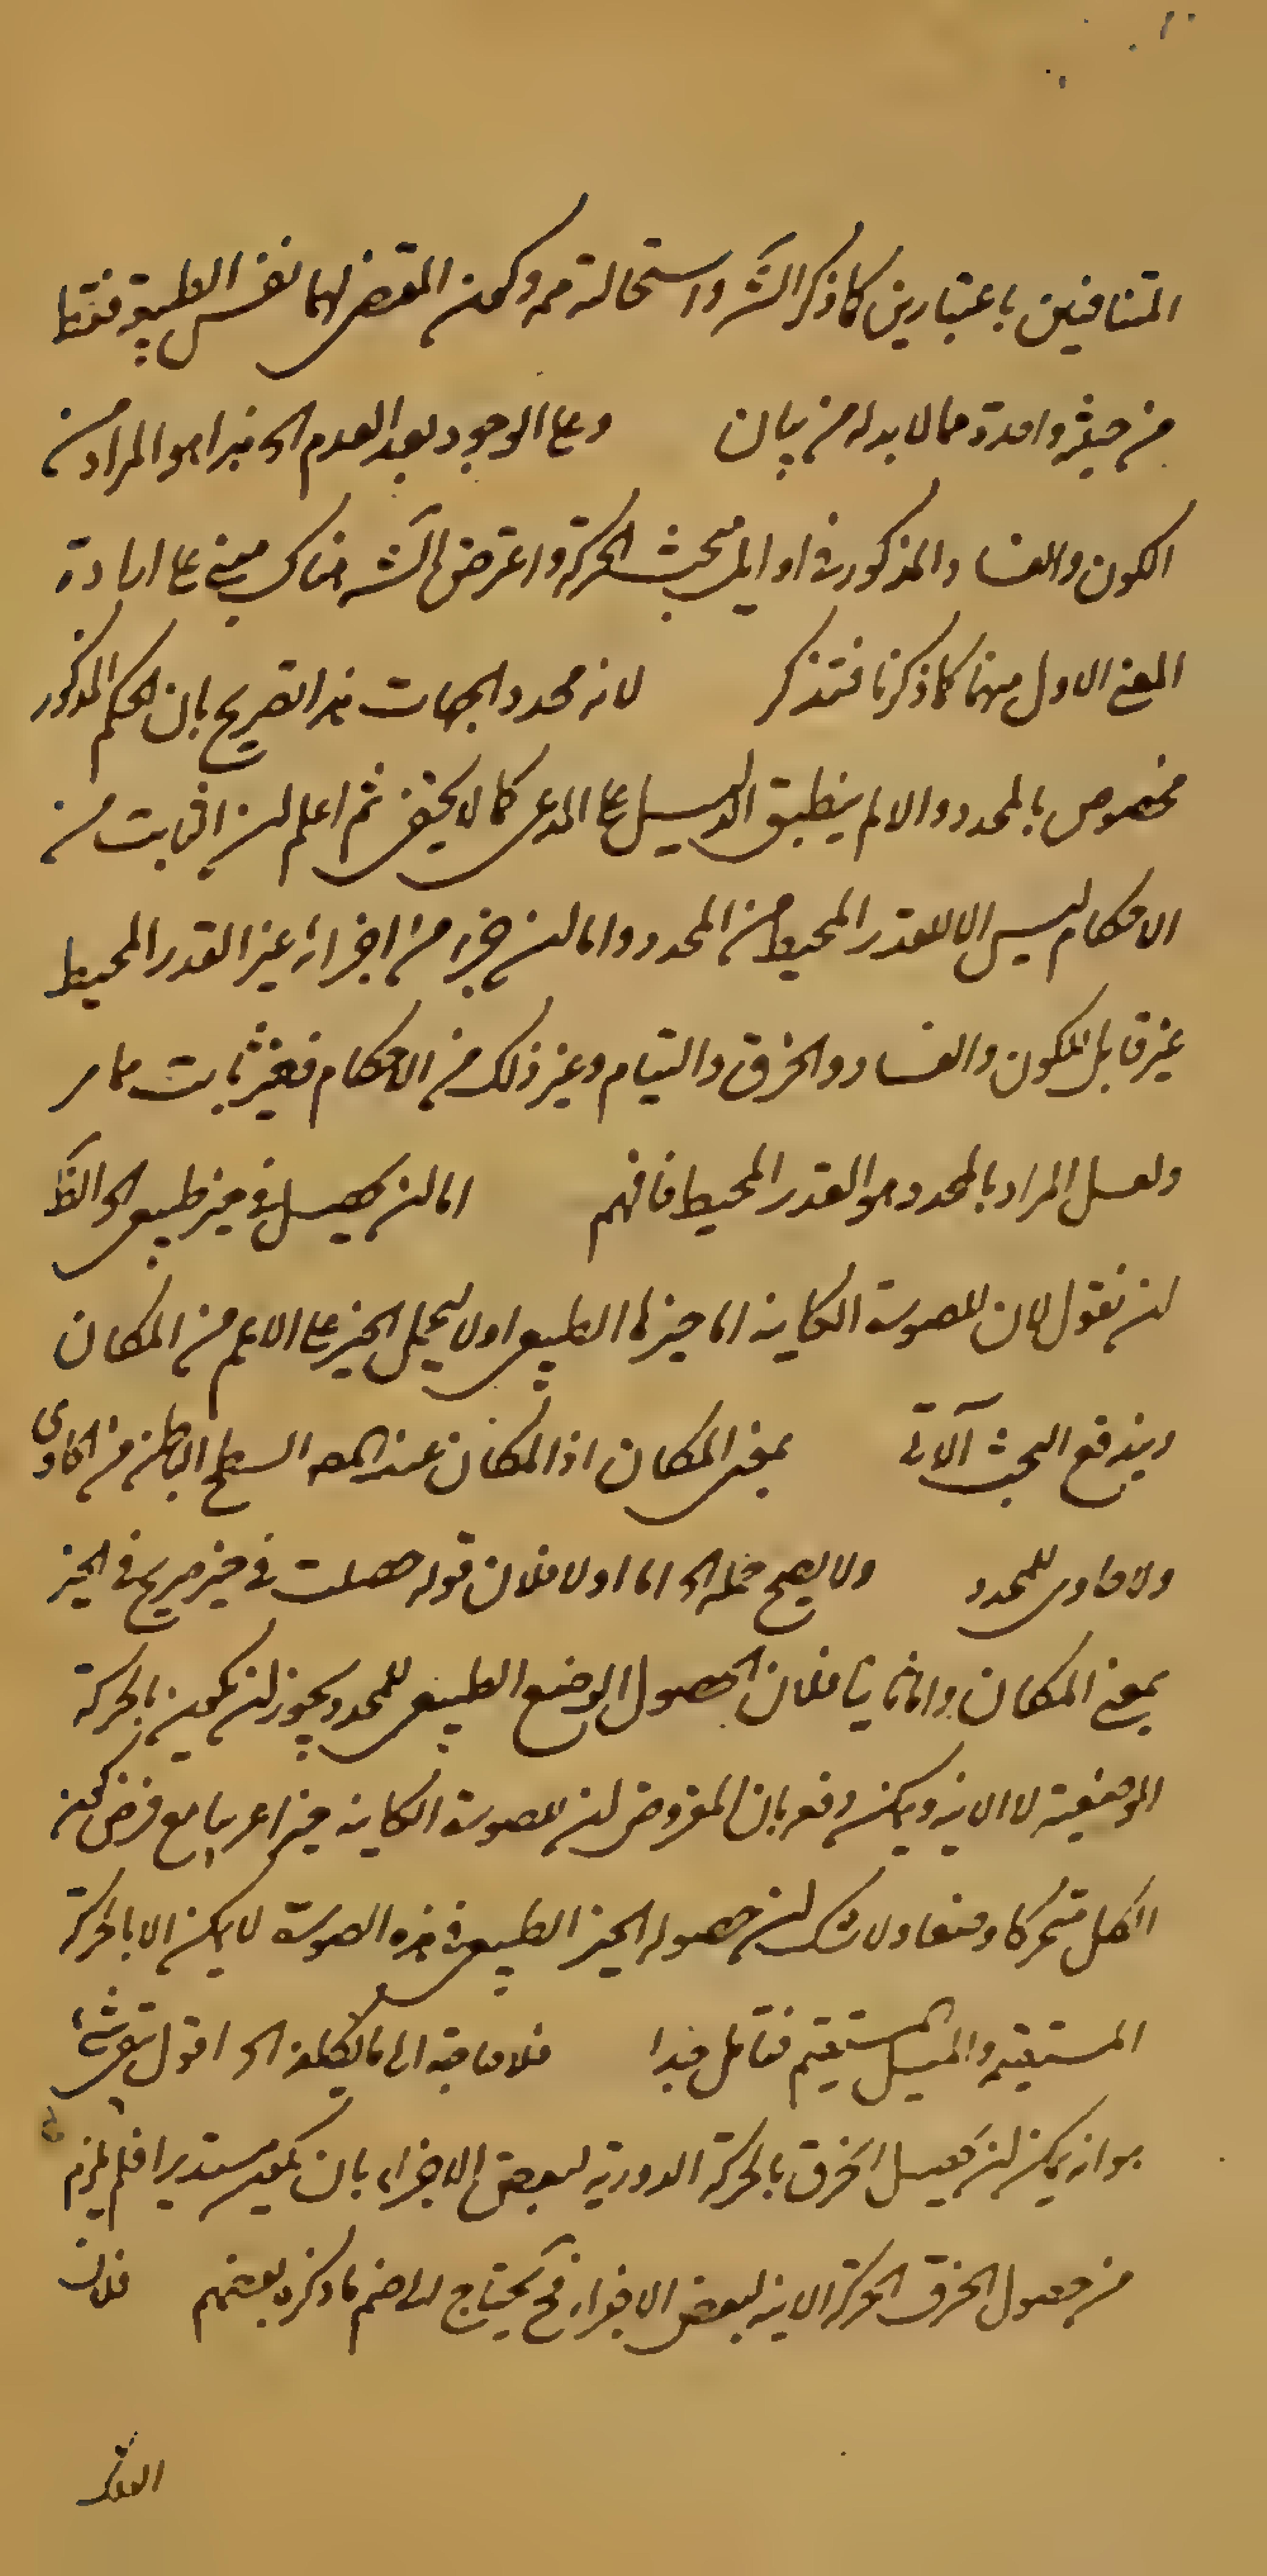 المتنافيين باعتبارين كما ذكر الش واستحالته مم وكون المقتضى لهما نفس الطبيعة فقط
من حيثية واحدة مما لا بد له من بيان وعلى الوجود بعد العدم الخ هذا هو المراد من
الكون والفساد المذكور في اوايل مبحث الحركة واعتراض الش هناك مبني على ارادة
المعنى الاول منهما كما ذكرنا فتذكر لانه محدد الجهات هذا تصريح بان الحكم المذكور
مخصوص بالمحدد والا لم ينطبق الدليل على المدعى كما لا يخفى ثم اعلم ان الثابت من
الاحكام ليس الا للقدر المحيط من المحدد واما ان جزء من اجزائه غير القدر المحيط
غير قابل للكون والفساد والخرق والتيام وغير ذلك من الاحكام فغير ثابت مما مر
ولعل المراد بالمحدد هو القدر المحيط فافهم اما ان يحصل في حيز طبيعي الخ الظ
ان نقول لان للصورة الكاينة اما حيزها الطبيعي او لا ليحمل الحيز على الاعم من المكان
ويندفع البحث الآتي بمعنى المكان اذ المكان عند المص السطح الباطن من الحاوي
ولا حاوي للمحدد ولا يصح حمله الخ اما اولا فلان قوله حصلت في حيز صريح في الحيز
بمعنى المكان واما ثانيا فلان الحصول الوضع الطبيعي للمحدد يجوز ان يكون بالحركة
الوضعية لا الاينية ويمكن دفعه بان المفروض ان للصورة الكاينة حيزا غريبا مع فرض كون
الكل متحركا وضعا ولا شك ان حصول الحيز الطبيعي في هذه الصورة لا يمكن الا بالحركة
المستقيمة والميل المستقيم فتامل جدا فلا حاجة الى ما يكلفه الخ اقول
هو انه يمكن ان يحصل الخرق بالحركة الدورية لبعض الاجزاء بان يكون مستديرا فلم يلزم
من حصول الخرق الحركة الاينية لبعض الاجزاء فح يحتاج الى ضم ما ذكره بعضهم فلان
الفلك